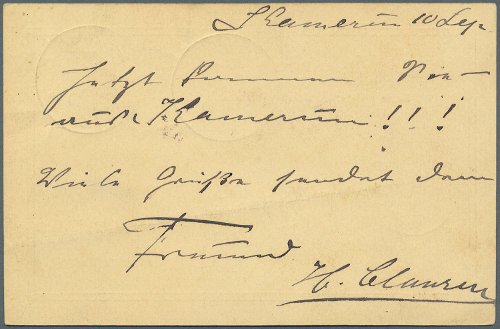 Kamerun 10 Sep.
Jetzt kommen Sie
aus Kamerun!!!
Viele Grüße sendet dem
Freund
H. Clausen